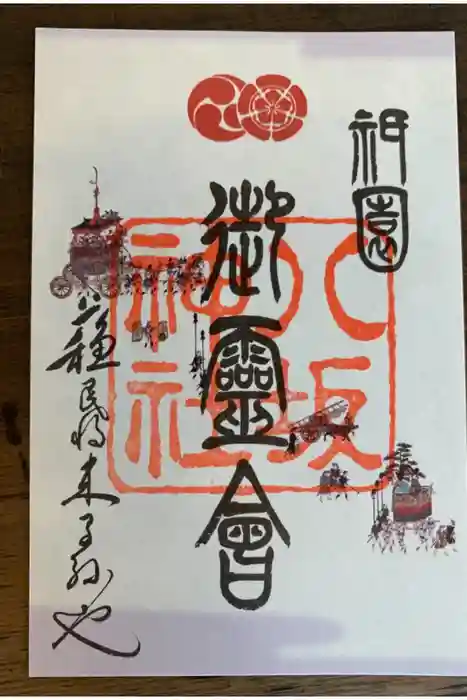 祇園
御靈會
八坂
神社
蘓民将来子孫也